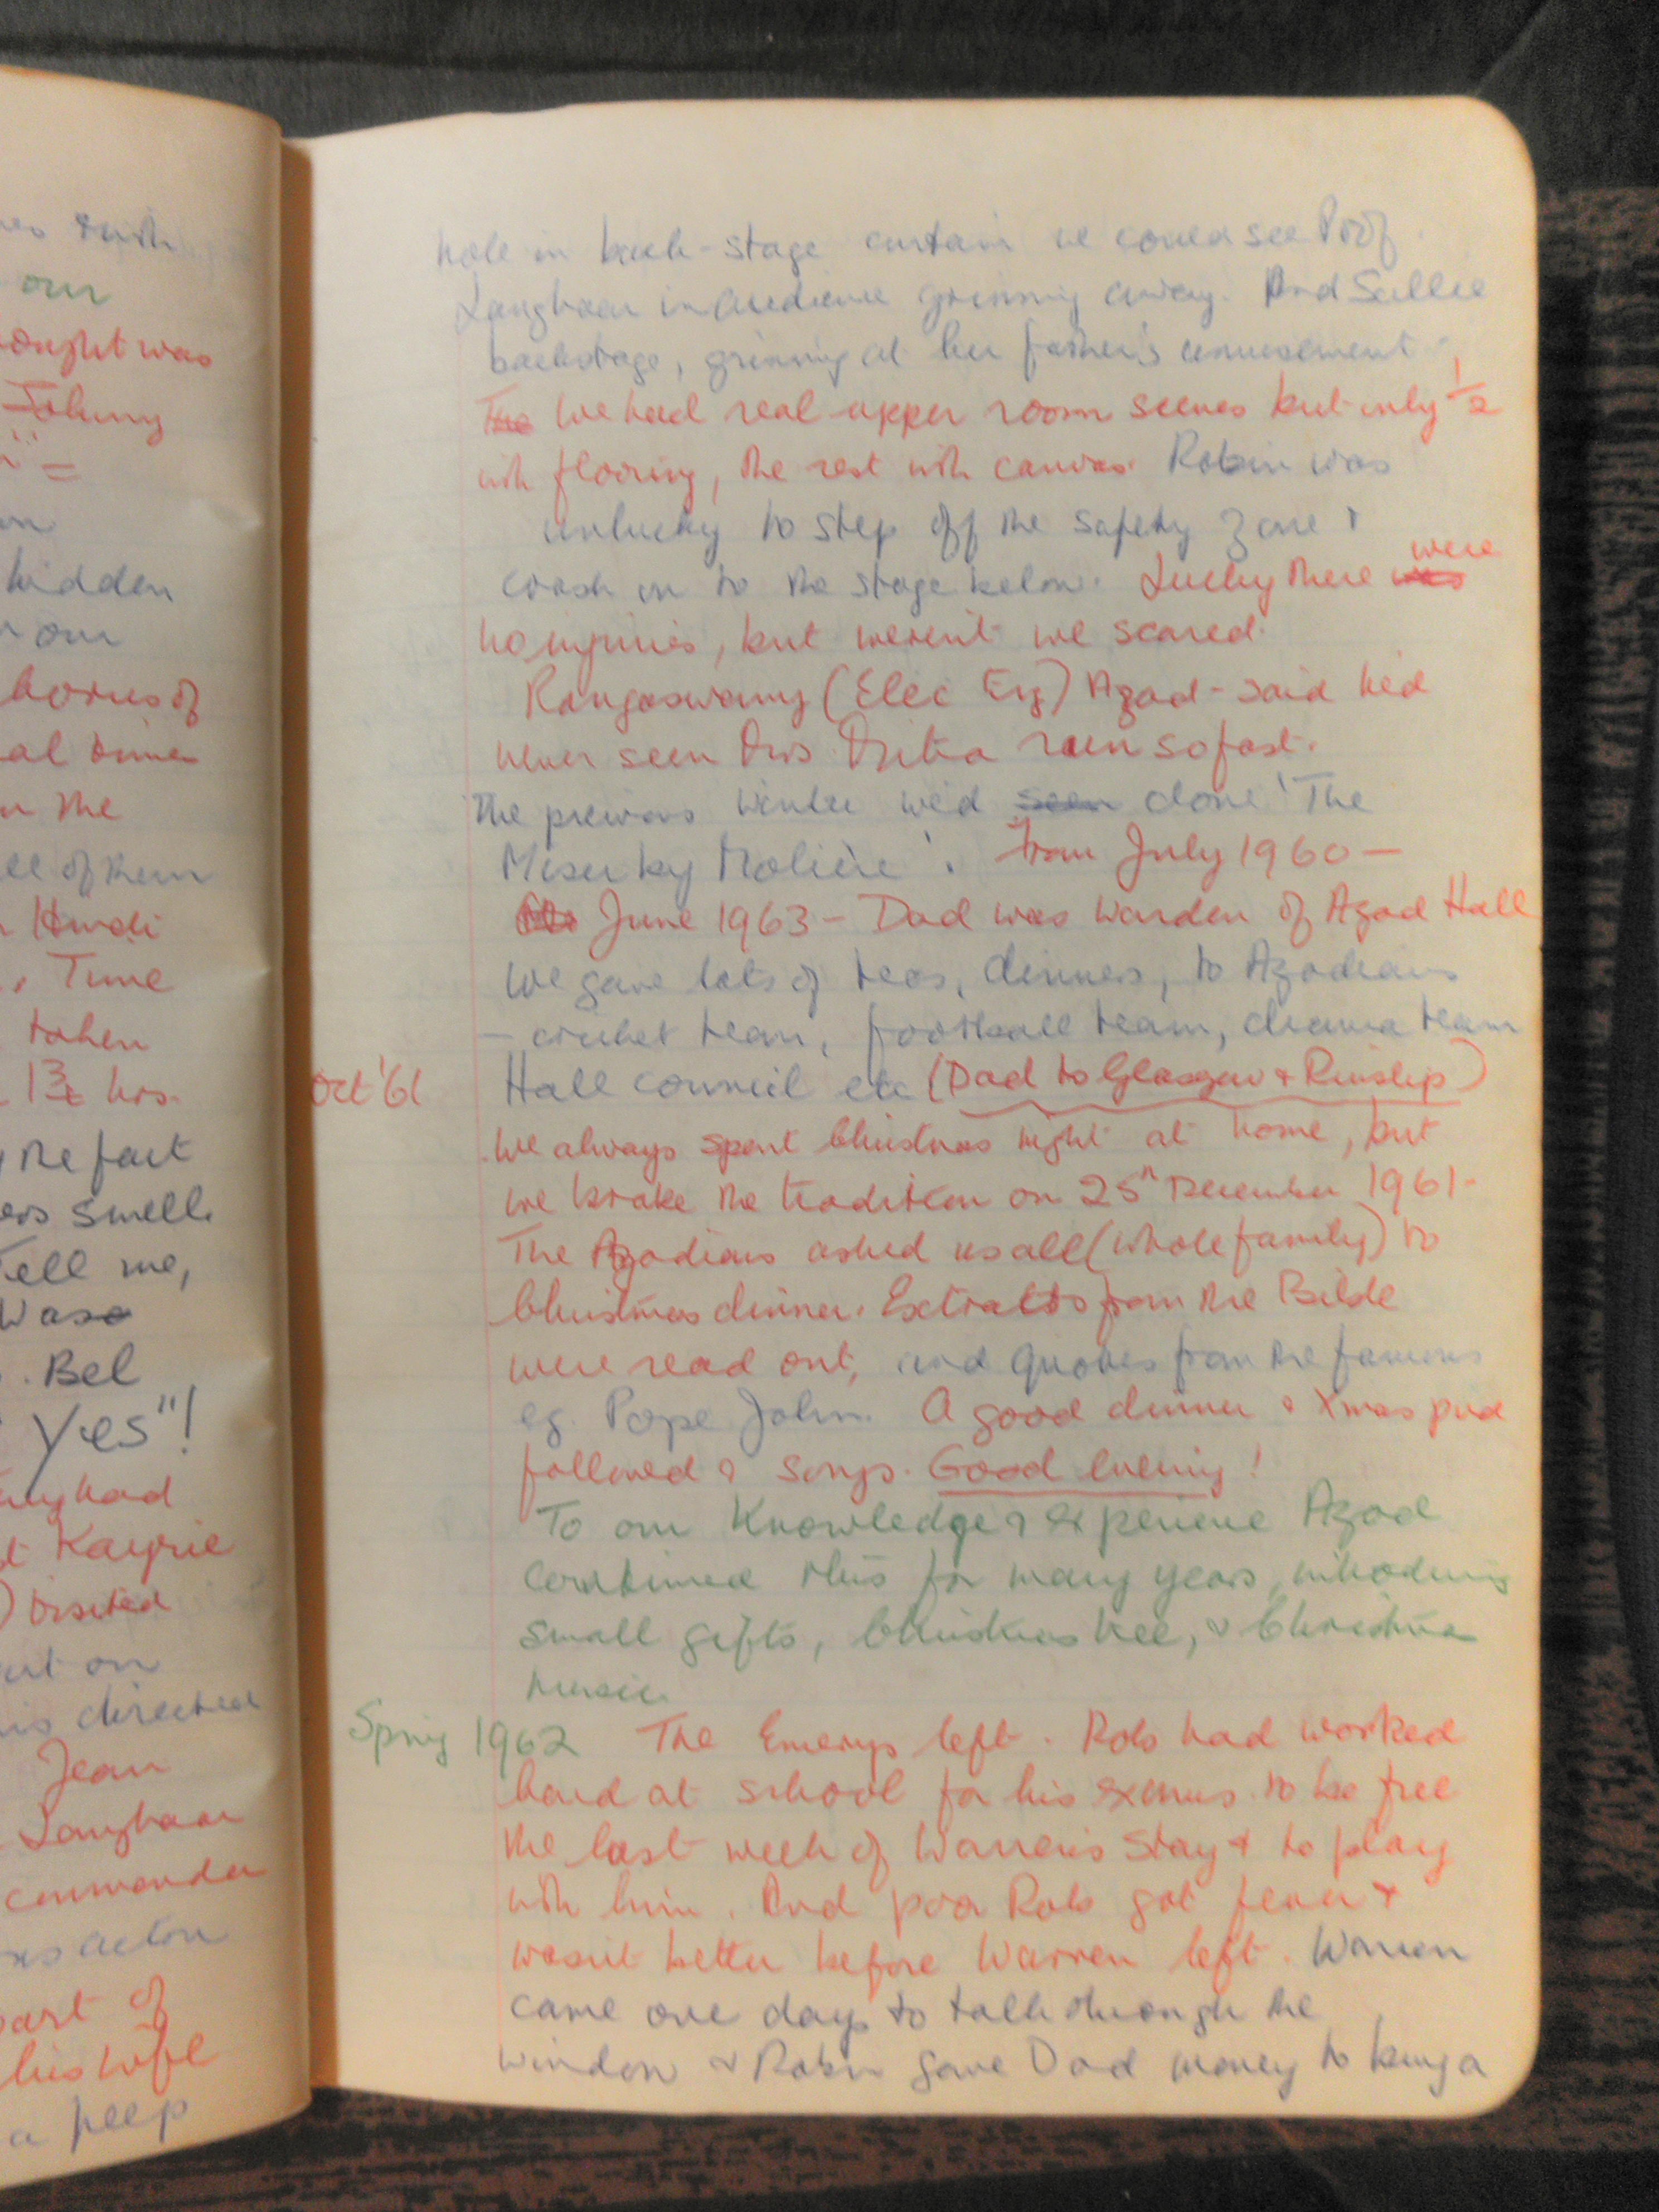 hole in back-stage curtain we could see Prof.
Langhaar in audience grinning away. And Sallie
backstage, grinning at her father's amusement.
The We had real upper room scenes but only 1/2
with flooring, the rest with canvas. Robin was
unlucky to step off the safety zone &
crash on to the stage below. Lucky there was were
no injuries, but weren't we scared.
Rangaswamy (Elec Eng) Azad - said he'd
never seen run so fast.
The previous winter we'd seen done 'The
Miser by Molière'. From July 1960 –
June 1963 – Dad was Warden of Azad Hall
We gave lots of teas, dinners, to Azadians
– cricket team, football team, drama team
Oct '61 Hall council etc (Dad to Glasgow & Ruislip)
We always spent Christmas night at home, but
we broke the tradition on 25th December 1961.
The Azadians asked us all (whole family) to
Christmas dinner. Extracts from the Bible
were read out, and quotes from the famous
eg. Pope John. A good dinner & Xmas pud
followed & songs. Good evening!
To our knowledge & experience Azad
continued this for many years, introducing
small gifts, Christmas tree, & Christmas
music.
Spring 1962 The Emerys left. Rob had worked
hard at school for his exams to be free
the last week of Warren's stay & to play
with him. And poor Rob got fever &
wasn't better before Warren left. Warren
came one day to talk through the
window & Robin gave Dad money to buy a
our
thought was
Johnny
hidden
our
of
al
the
of them
Hindi
Time
taken
hrs.
the fact
smell.
Tell me,
Was
. Bel
Yes"!
had
Kayrie
) visited
on
directed
Jean
Langhaar
commander
part of
his wife
a peep